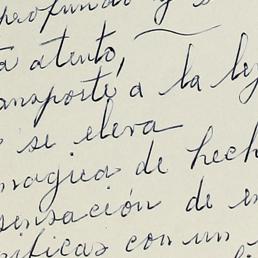 profundo y s
a atento,
ansporté a la le
se eleva
magica de hech
sensación de en
ificas con un